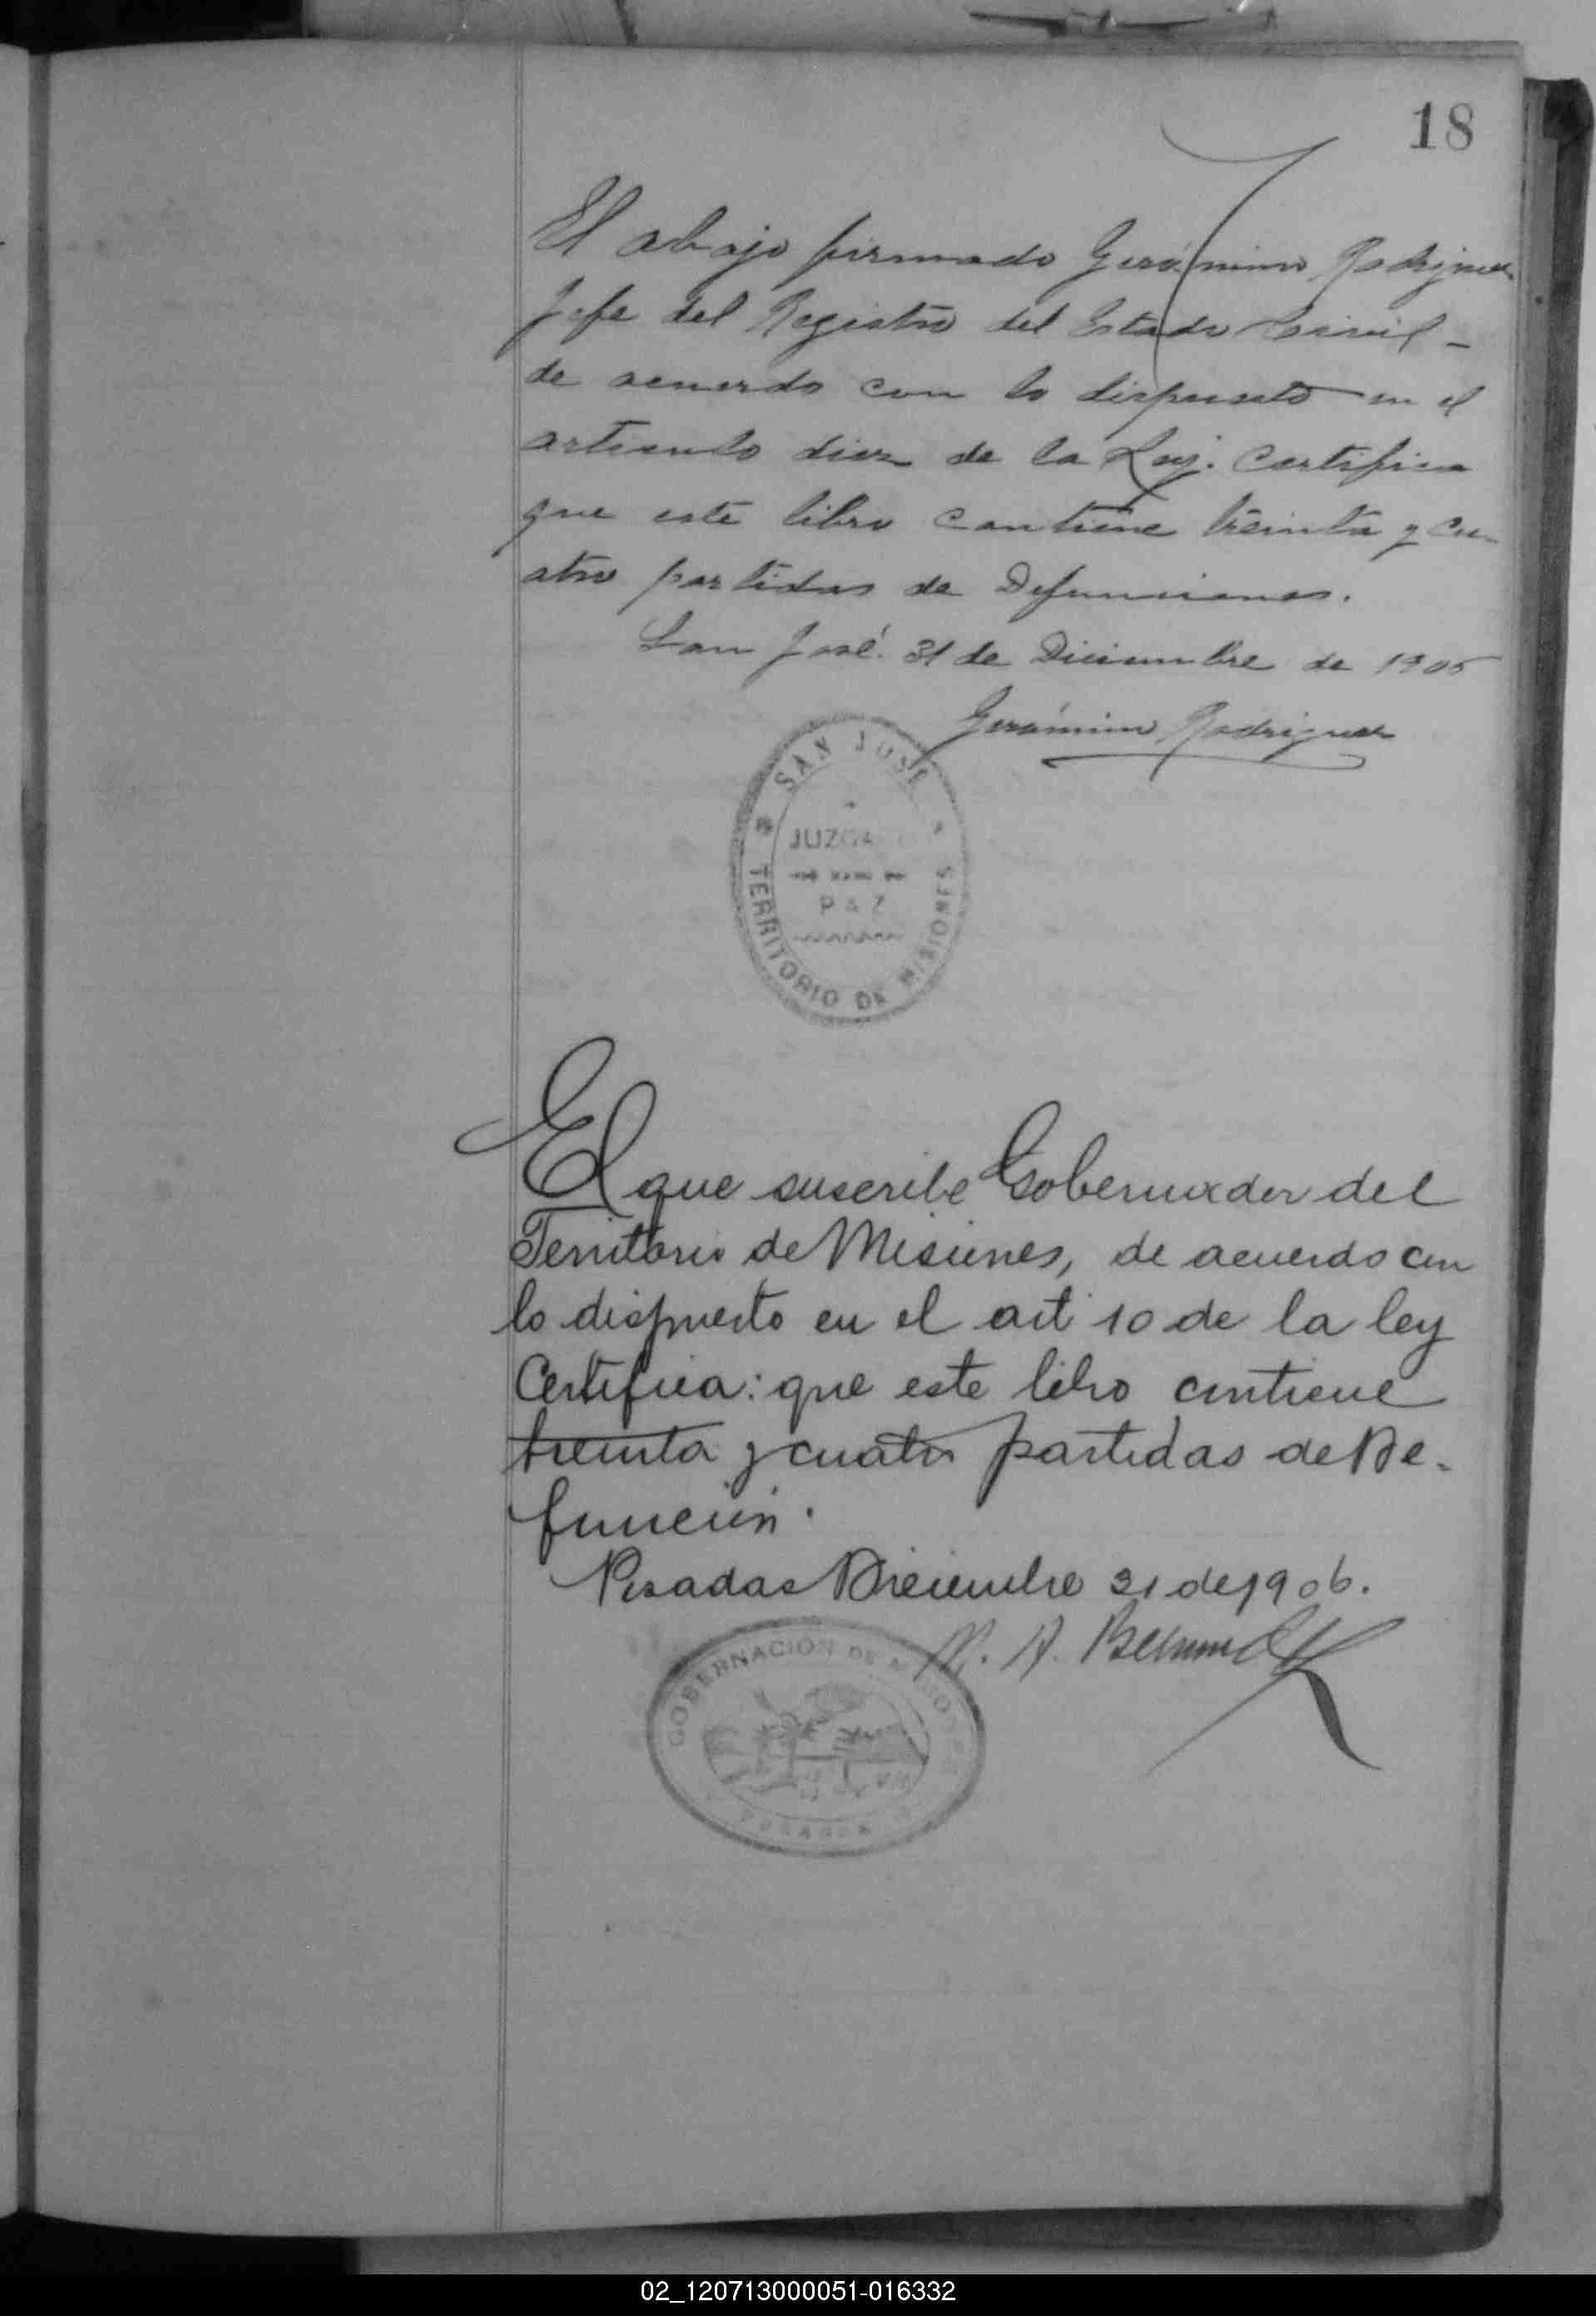 18
El abajo firmado Gerónimo Rodriguez
Jefe del Registro del Estado Civil -
de acuerdo con lo dispuesto en el
articulo diez de la Ley. Certifica
que este libro contiene treinta y cu-
atro partidas de Defunciones.
San José. 31 de Diciembre de 1905
Gerónimo Rodriguez
SAN JOSE
JUZGA
PAZ
TERRITORIO DE MISIONES
El que suscribe Gobernador del
Territorio de Misiones, de acuerdo con
lo dispuesto en el art 10 de la ley
Certifica: que este libro contiene
treinta y cuatro partidas de De-
funcion.
Posadas Diciembre 31 de 1906.
GOBERNACION DE MISIONES
POSADAS
02_120713000051-016332